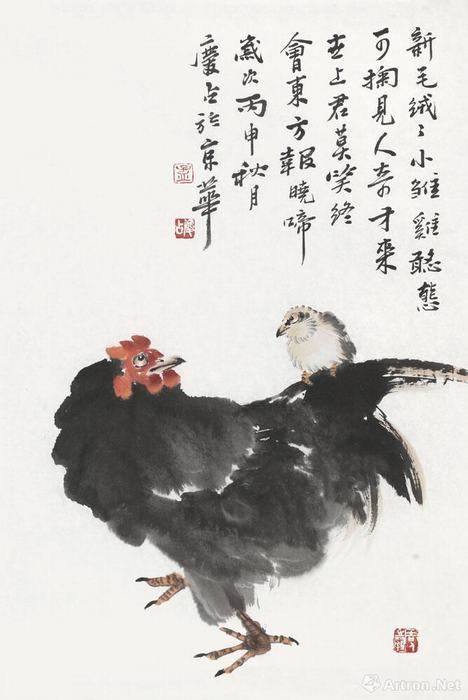 新毛絨〻小雛雞憨態
可掬見人奇才來
世上君莫笑終
會東方報曉啼
歲次丙申秋月
慶占於京華
Artron.Net